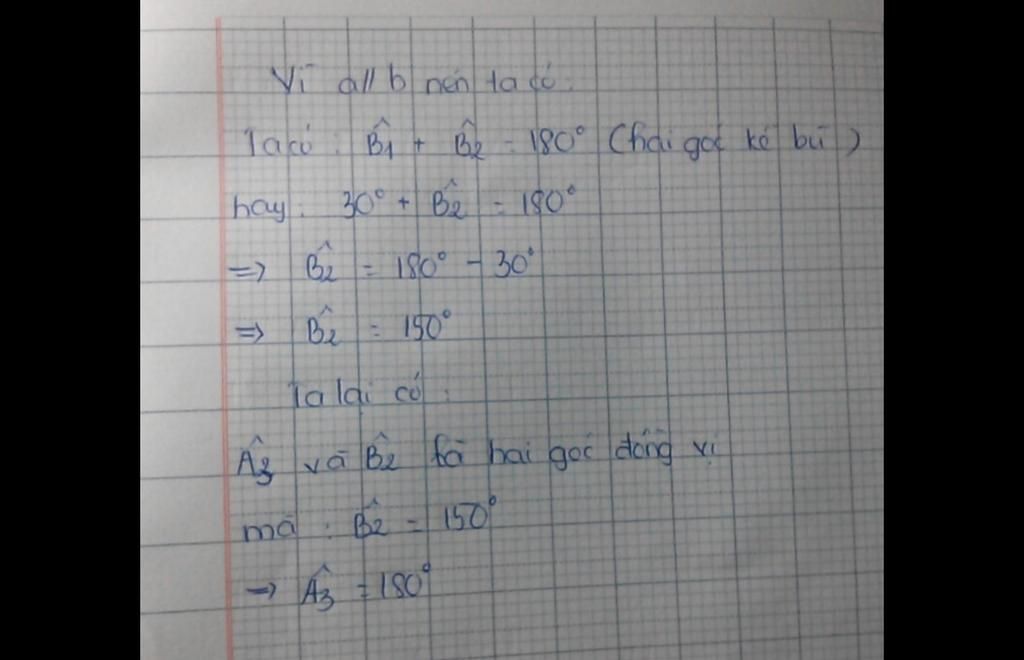 Vì a//b nên ta có:
Ta có: B̂1 + B̂2 = 180° (hai góc kề bù)
hay: 30° + B̂2 = 180°
=> B̂2 = 180° - 30°
=> B̂2 = 150°
Ta lại có:
Â3 và B̂2 là hai góc đồng vị
mà: B̂2 = 150°
=> Â3 = 180°